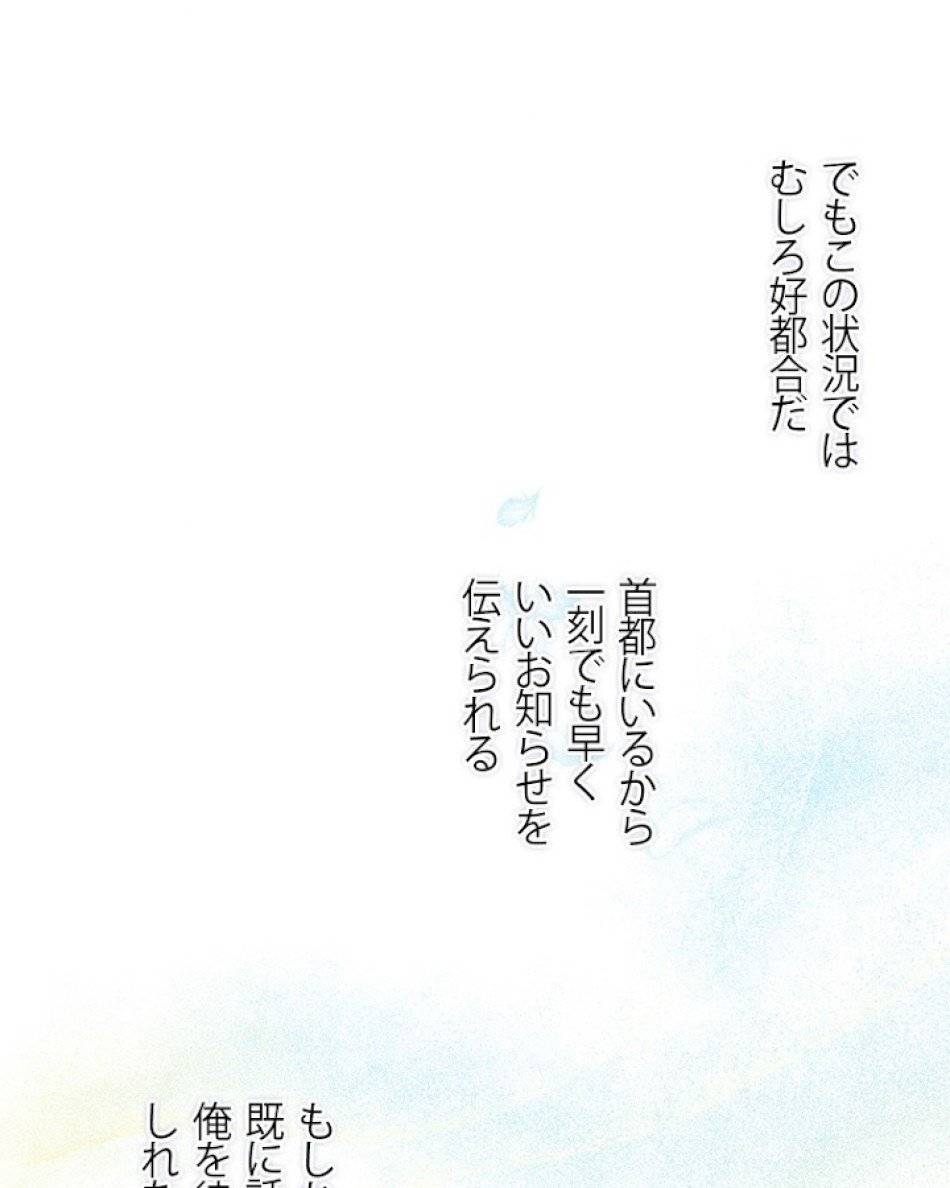 でもこの状況では
むしろ好都合だ
首都にいるから
一刻でも早く
いいお知らせを
伝えられる
もし
既に
俺を
しれ